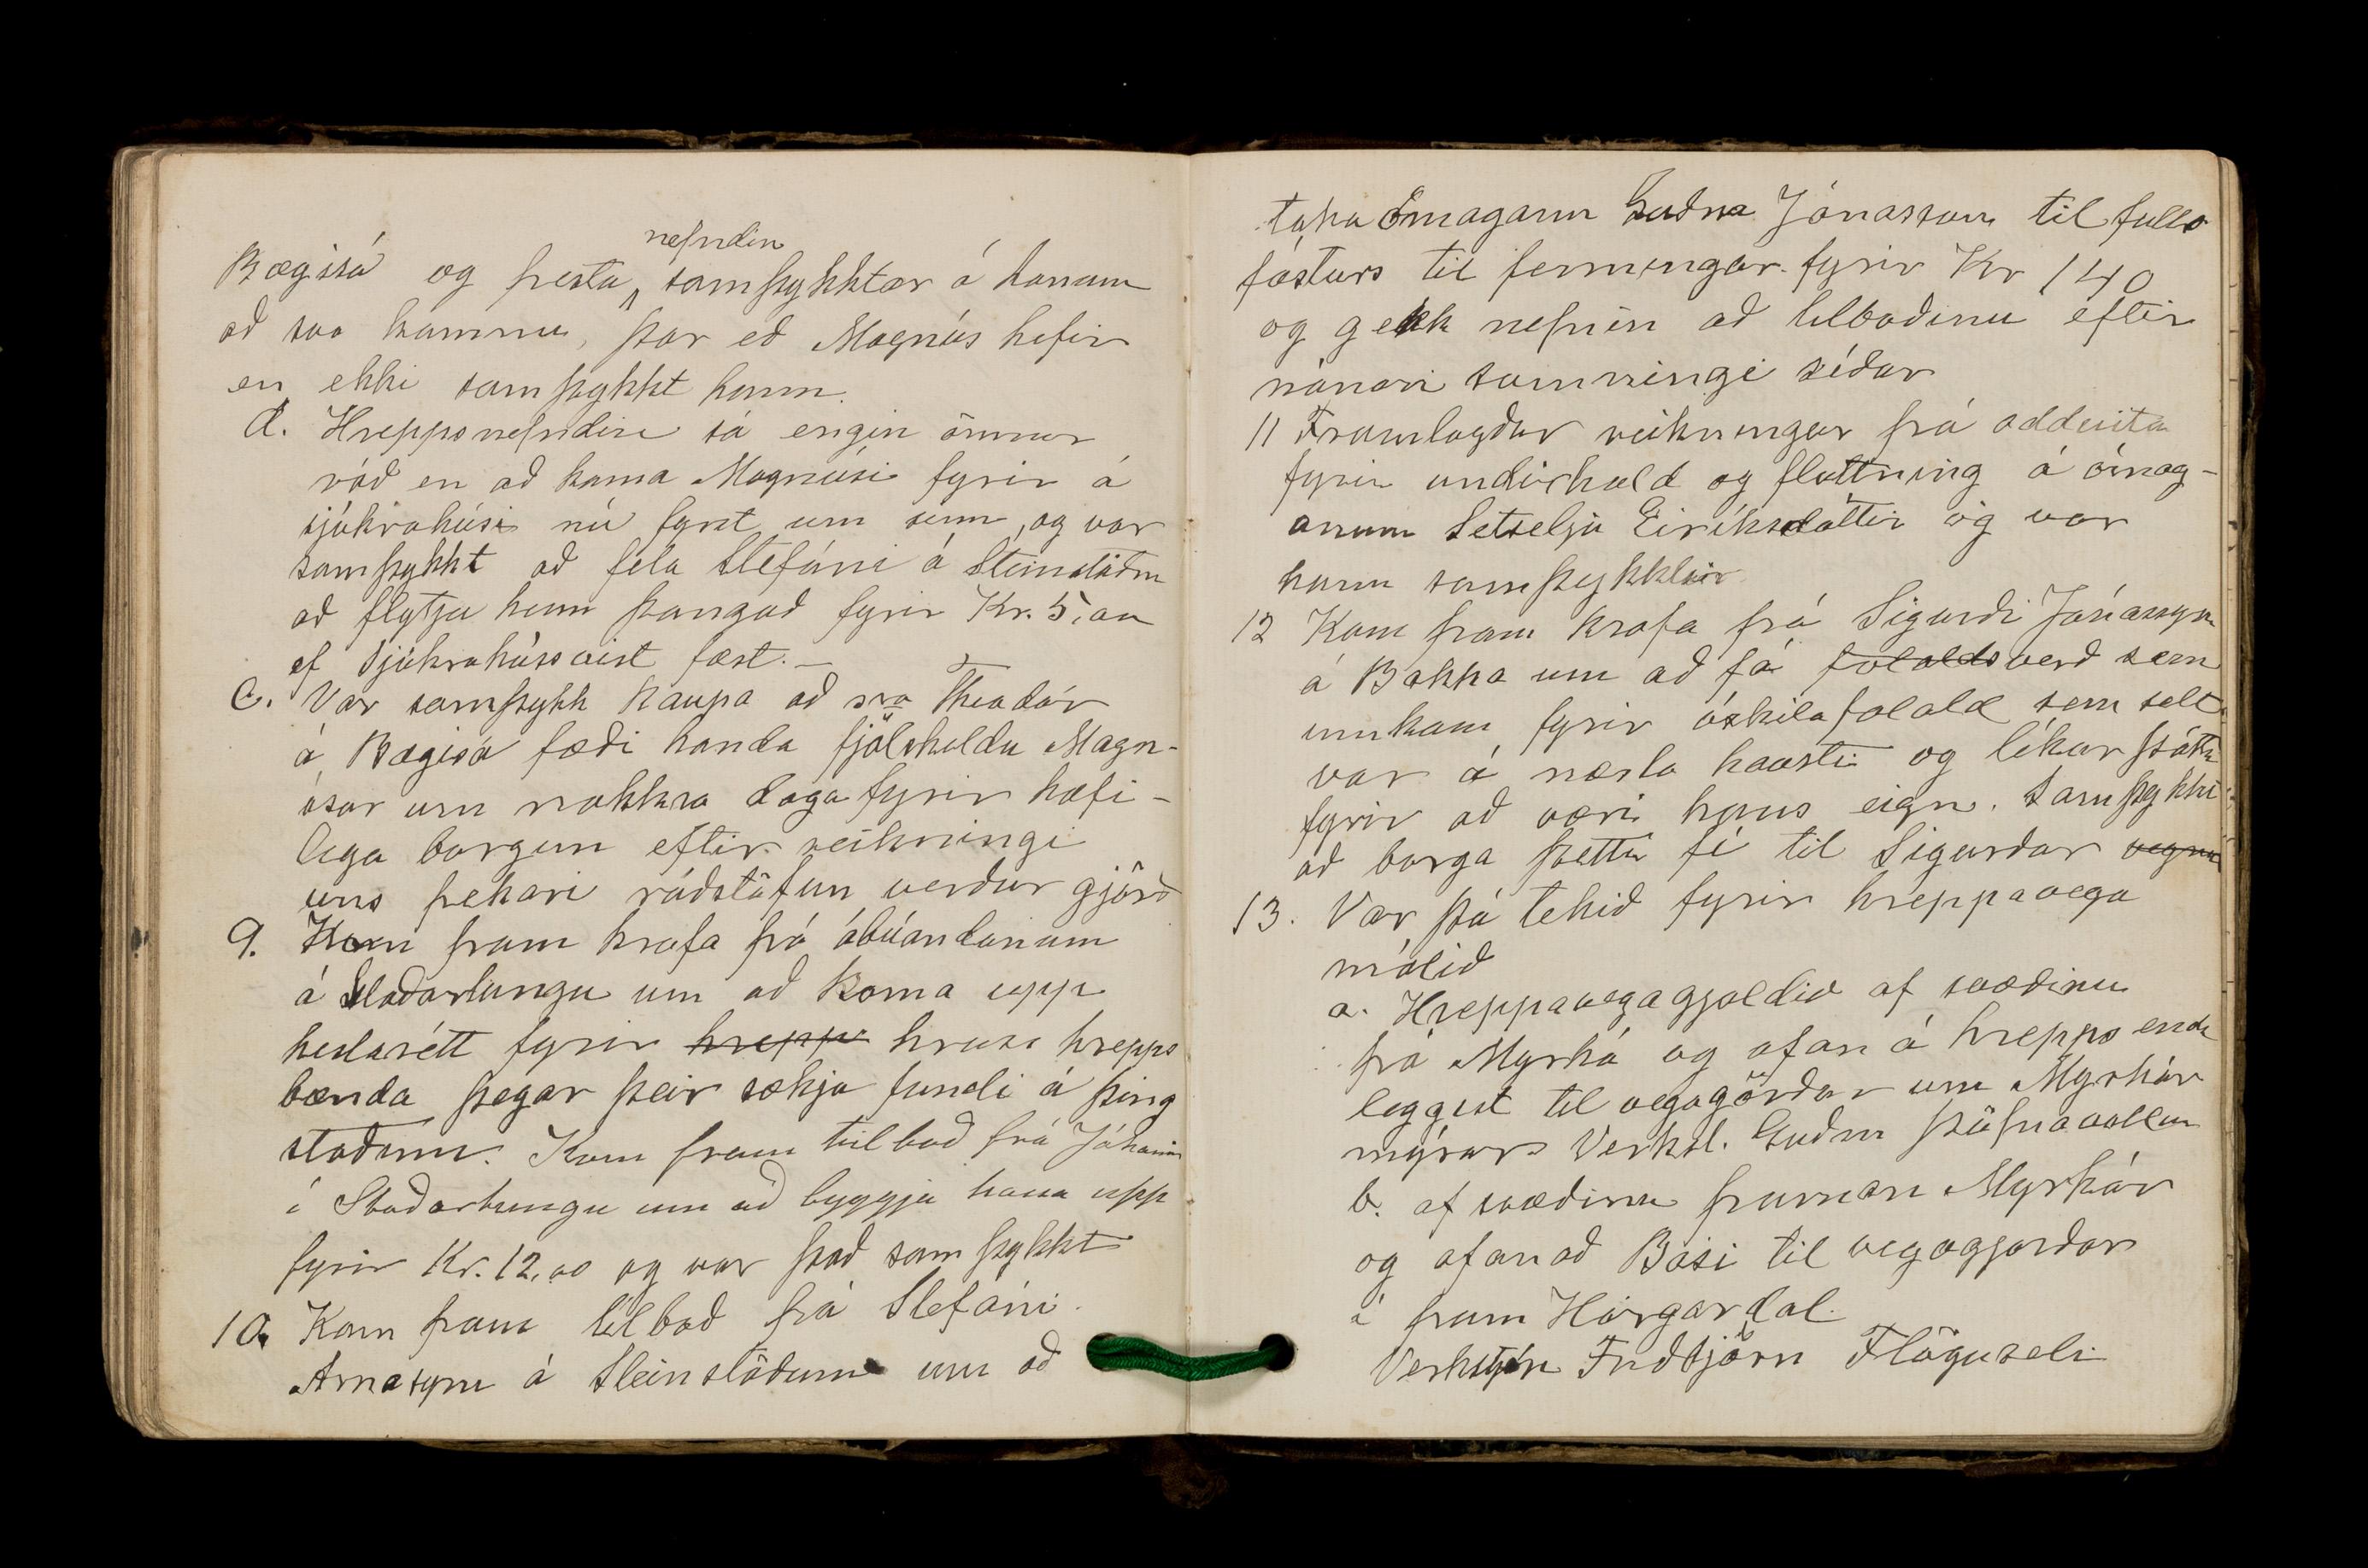 Bægisá og fresta nefndin samþykktar á honum
að svo kömnu, þar eð Magnús hefir
en ekki samþykkt hann.
d. Hreppsnefndin sá engin önnur
ráð en að koma Magnúsi fyrir á
sjúkrahúsi nú fyrst um sinn, og var
samþykkt að fela Stefáni á Steinstöðum
að flytja hann þangað fyrir Kr. 5,00
ef Sjúkrahússvist fæst. —
e. Var samþykk kaupa að sra Theadór
á Bægisá fæði handa fjölskyldu Magn-
úsar um nokkra daga fyrir hæfi-
lega borgun eftir reikningi
uns frekari ráðstöfun verður gjörð
9. Kom fram krafa frá ábúandanum
á Staðartungu um að koma upp
hestarétt fyrir hrepps hross hrepps
bænda þegar þeir sækja fundi á þing
staðnum. Kom fram tilboð frá Jóhanni
í Staðartungu um að byggja hana upp
fyrir Kr. 12,00 og var það samþykkt
10. Kom fram tilboð frá Stefáni
Árnasyni á Steinstöðum um að
taka Ómagann Guðna Jónasson til fulls
fósturs til fermingar fyrir Kr 140
og gekk nefnin að tilboðinu eftir
nánari samningi síðar
11 Framlagður reikningur frá oddvita
fyrir undirhald og fluttning á ómag-
anum Setselju Eiríksdóttir og var
hann samþykktur
12 Kom fram krafa frá Sigurði Jónassyni
á Bakka um að fá folalds verð sem
innkom fyrir óskilafolald sem selt
var á næsta hausti og líkur þóttu
fyrir að væri hans eign. Samþykkt
að borga þetta fé til Sigurðar vegna
13. Var þá tekið fyrir hreppavega
málið
a. Hreppavegagjaldið af svæðinu
frá Myrká og ofan á hrepps enda
leggist til vegagörðar um Myrkár
mýrar Verkst. Guðm Þúfnavöllum
b. af svæðinu framan Myrkár
og ofan að Bási til vegagjörðar
í fram Hörgárdal.
Verkstjóri Friðbjörn Flöguseli